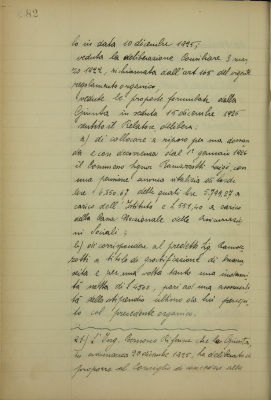 682
to in data 10 dicembre 1925;
veduta la deliberazione Consiliare 3 mar-
zo 1922, richiamata dall'art 165 del vigente
regolamento organico,
vedute le proposte formulate dalla
Giunta in seduta 15 dicembre 1925
sentito il Relatore delibera:
a) di collocare a riposo per sua doman-
da e con decorrenza dal 1° gennaio 1926
il Economo Signor Ramazzotti Luigi con
una pensione annua vitalizia di
lire 6.350.67 delle quali lire 5.799,27 a
carico dell'Istituto e £ 551,40 a carico
della Cassa Nazionale delle Assicurazio-
ni Sociali;
b) di corrispondere al predetto Sig. Ramaz-
zotti a titolo di gratificazione di buona
uscita e per una volta tanto una
netta di £ 4500, pari ad una
dello stipendio ultimo da lui percepi-
to col precedente organico.
21) L'Ing. riferisce che la Giunta,
in adunanza 20 dicembre 1925, ha deliberato di
proporre al Consiglio di